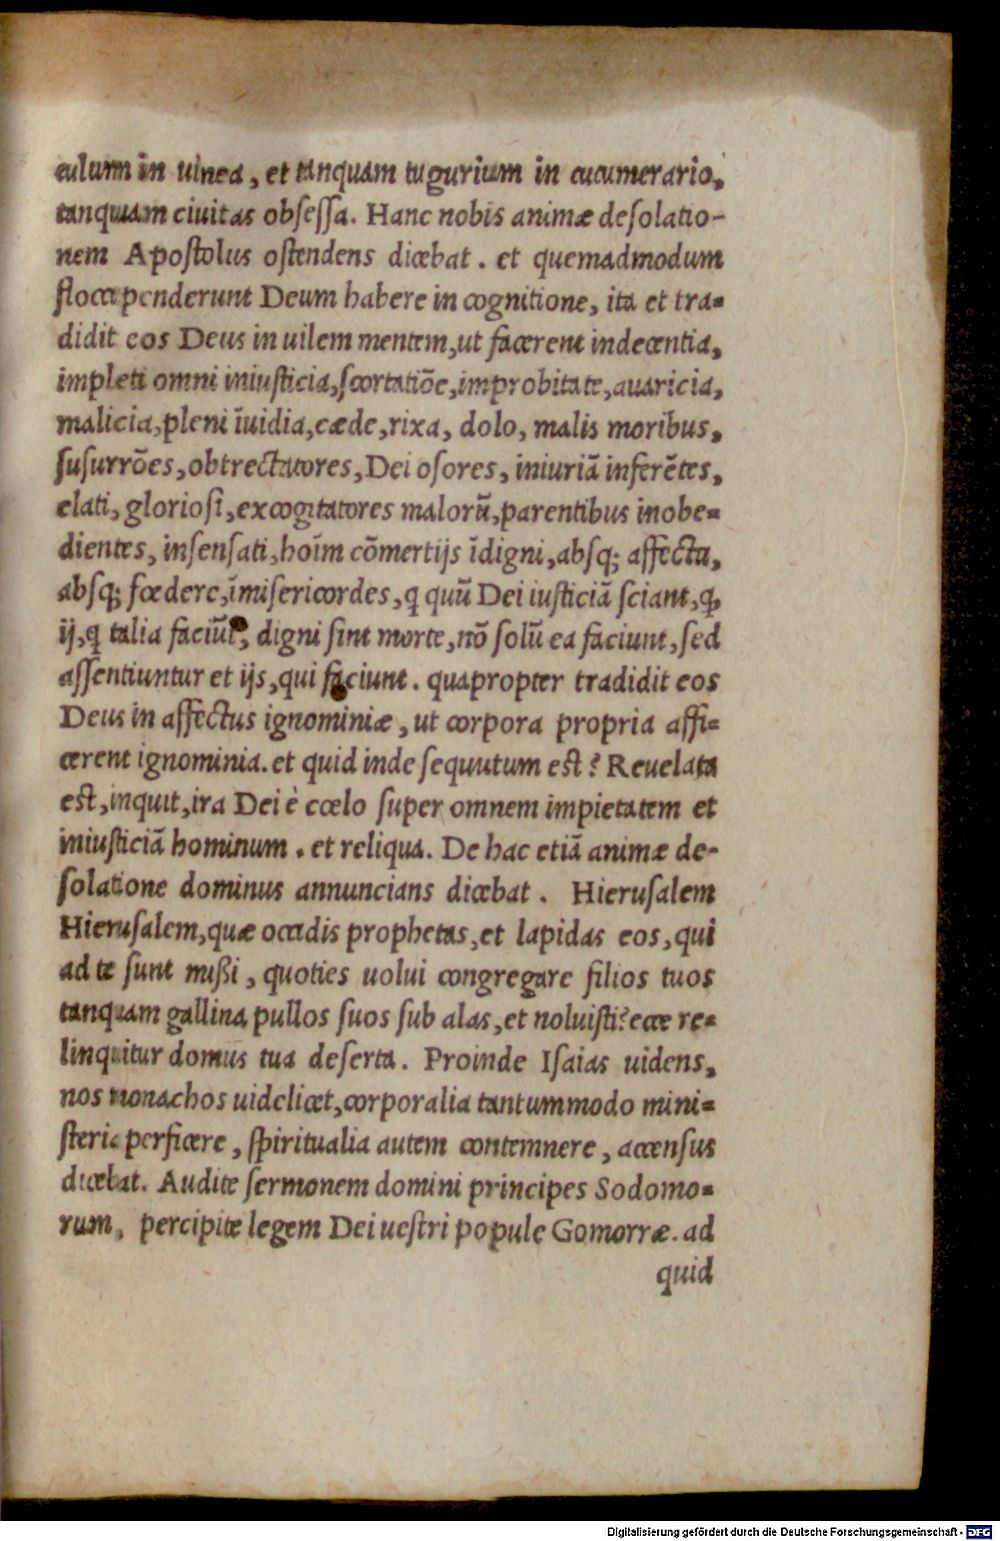 culum in uinea, et tanquam tugurium in cucumerario,
tanquam ciuitas obsessa. Hanc nobis animæ desolatio-
nem Apostolus ostendens dicebat. et quemadmodum
flocci penderunt Deum habere in cognitione, ita et tra-
didit eos Deus in uilem mentem, ut facerent indecentia,
impleti omni iniusticia, scortatiõe, improbitate, auaricia,
malicia, pleni ĩuidia, cæde, rixa, dolo, malis moribus,
susurrões, obtrectatores, Dei osores, iniuriã inferẽtes,
elati, gloriosi, excogitatores malorũ, parentibus inobe-
dientes, insensati, hoĩm cõmertijs ĩdigni, absq; affectu,
absq; fœdere, ĩmisericordes, q quũ Dei iusticiã sciant, ꝙ
ij, q talia faciũt, digni sint morte, nõ solũ ea faciunt, sed
assentiuntur et ijs, qui faciunt. quapropter tradidit eos
Deus in affectus ignominiæ, ut corpora propria affi-
cerent ignominia. et quid inde sequutum est? Reuelata
est, inquit, ira Dei è cœlo super omnem impietatem et
iniusticiã hominum. et reliqua. De hac etiã animæ de-
solatione dominus annuncians dicebat. Hierusalem
Hierusalem, quæ occidis prophetas, et lapidas eos, qui
ad te sunt mißi, quoties uolui congregare filios tuos
tanquam gallina pullos suos sub alas, et noluisti? ecce re-
linquitur domus tua deserta. Proinde Isaias uidens,
nos monachos uidelicet, corporalia tantummodo mini-
steria perficere, spiritualia autem contemnere, accensus
dicebat. Audite sermonem domini principes Sodomo-
rum, percipite legem Dei uestri popule Gomorræ. ad
quid
Digitalisierung gefördert durch die Deutsche Forschungsgemeinschaft - DFG